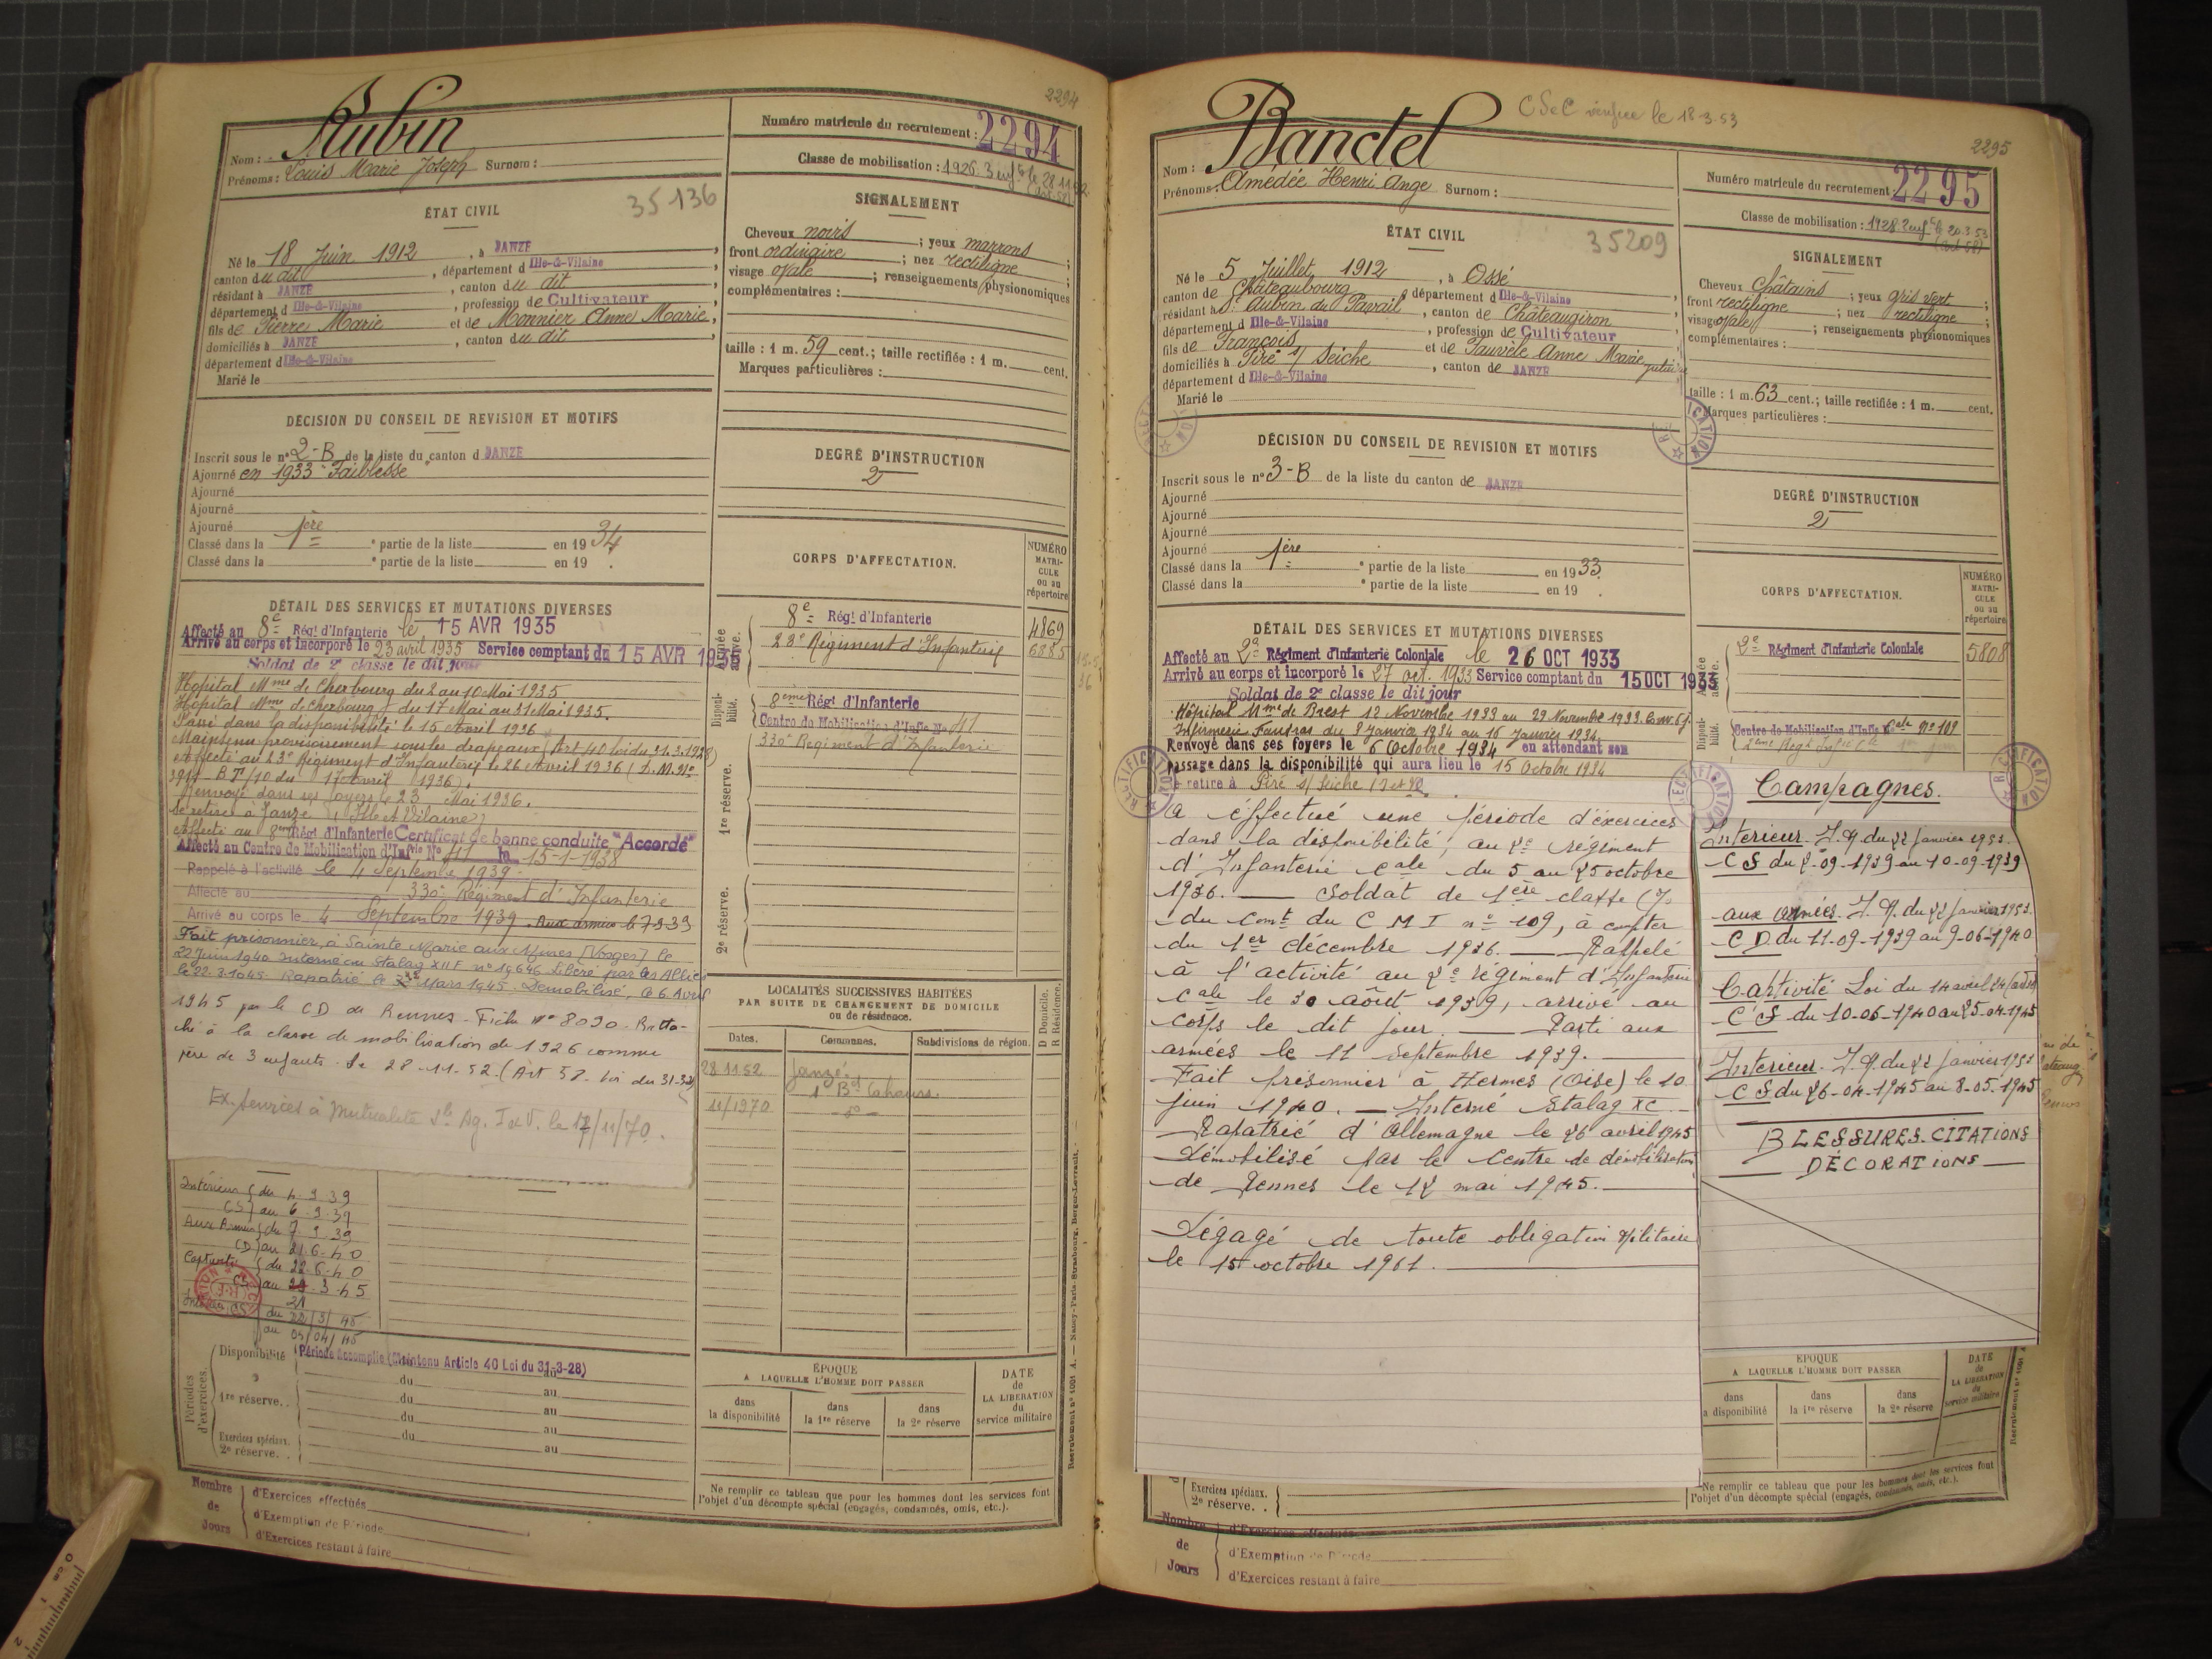 2294
Aubin
Nom :
Prénoms : Louis Marie Joseph Surnom :
Numéro matricule du recrutement : 2294
Classe de mobilisation : 1926. 3 enfts le 28.11.52
ÉTAT CIVIL
35136
Né le 18 Juin 1912, à JANZÉ
canton du dit, département d Ille-&-Vilaine
résidant à JANZÉ, canton du dit
département d Ille-&-Vilaine, profession de Cultivateur
fils de Pierre Marie et de Monnier Anne Marie,
domiciliés à JANZÉ, canton du dit
département d Ille-&-Vilaine
Marié le
SIGNALEMENT
Cheveux noirs ; yeux marrons ;
front ordinaire ; nez rectiligne ;
visage ovale ; renseignements physionomiques
complémentaires :
taille : 1 m. 59 cent.; taille rectifiée : 1 m. cent.
Marques particulières :
DÉCISION DU CONSEIL DE REVISION ET MOTIFS
Inscrit sous le n° 2-B de la liste du canton d JANZÉ
Ajourné en 1933 "Faiblesse"
Ajourné
Ajourné
Ajourné
Classé dans la 1ère e partie de la liste en 1934
Classé dans la e partie de la liste en 19 .
DEGRÉ D'INSTRUCTION
2
CORPS D'AFFECTATION.
NUMÉRO MATRICULE ou au répertoire
Armée active.
8e Régt d'Infanterie 4869
23e Régiment d'Infanterie 6885
Disponibilité.
8eme Régt d'Infanterie
Centre de Mobilisation d'Infie No 41
330e Régiment d'Infanterie
1re réserve.
2e réserve.
DÉTAIL DES SERVICES ET MUTATIONS DIVERSES
Affecté au 8e Régt d'Infanterie le 15 AVR 1935
Arrivé au corps et incorporé le 23 avril 1935 Service comptant du 15 AVR 1935
Soldat de 2e classe le dit jour
Hôpital Mme de Cherbourg du 2 au 10 Mai 1935
Hôpital Mme de Cherbourg du 17 Mai au 31 Mai 1935.
Passé dans la disponibilité le 15 Avril 1936
Maintenu provisoirement sous les drapeaux (Art 40 loi du 31.3.1928)
Affecté au 23e Régiment d'Infanterie le 26 Avril 1936 (D.M. No
BT/10 du 17 avril 1936).
Renvoyé dans ses foyers le 23 Mai 1936.
Se retire à Janzé (Ille et Vilaine)
Affecté au 8eme Régt d'Infanterie Certificat de bonne conduite "Accordé"
Affecté au Centre de Mobilisation d'Infrie No 41 le 15-1-1938
Rappelé à l'activité le 4 Septembre 1939.
Affecté au 330e Régiment d'Infanterie
Arrivé au corps le 4 Septembre 1939. Aux armées le 7.9.39
Fait prisonnier, à Sainte Marie aux Mines (Vosges) le
22 juin 1940 Interné au Stalag XII F n° 19646 Libéré par les Alliés
le 22.3.1945. Rapatrié le Mars 1945. Démobilisé, le 6 Avril
1945 par le CD de Rennes - Fiche n° 8090. Ratta-
ché à la classe de mobilisation de 1926 comme
père de 3 enfants. Le 28-11-52. (Art 58. loi du 31-3-28)
Ex. services à Mutualité Sle Ag. I&V. le 12/11/70.
Intérieur du 4.9.39
(CS) au 6.9.39
Aux Armées du 7.9.39
(CD) au 21.6.40
Captivité du 22.6.40
CS au 3.45
21
Intérieur CS du 22/3/45
au 05/04/45
LOCALITÉS SUCCESSIVES HABITÉES
PAR SUITE DE CHANGEMENT DE DOMICILE
ou de résidence.
Dates. Communes. Subdivisions de région. D Domicile. R Résidence.
28.11.52 Janzé.
1 Bd Cahours.
11/1970 -do-
Périodes d'exercices.
Disponibilité Période accomplie (Maintenu Article 40 Loi du 31-3-28)
du au
1re réserve. . du au
du au
Exercices spéciaux. du au
2e réserve. . au
ÉPOQUE
A LAQUELLE L'HOMME DOIT PASSER
dans la disponibilité
dans la 1re réserve
dans la 2e réserve
DATE de LA LIBÉRATION du service militaire
Ne remplir ce tableau que pour les hommes dont les services font
l'objet d'un décompte spécial (engagés, condamnés, omis, etc.).
Nombre de Jours
d'Exercices effectués
d'Exemption de Période
d'Exercices restant à faire
Recrutement n° 1001 A. — Nancy-Paris-Strasbourg, Berger-Levrault.
CSeC vérifiée le 18-3-53
2295
Bandel
Nom :
Prénoms : Amédée Henri Ange Surnom :
Numéro matricule du recrutement : 2295
Classe de mobilisation : 1928. 2 enfts le 20.3.53
(Art 58)
ÉTAT CIVIL
35209
Né le 5 Juillet 1912, à Ossé
canton de Châteaubourg, département d Ille-&-Vilaine
résidant à St Aubin du Pavail, canton de Châteaugiron
département d Ille-&-Vilaine, profession de Cultivateur
fils de François et de Fauvele Anne Marie
domiciliés à Piré s/ Seiche, canton de JANZÉ
département d Ille-&-Vilaine
Marié le
SIGNALEMENT
Cheveux Châtains ; yeux gris vert ;
front rectiligne ; nez rectiligne ;
visage ovale ; renseignements physionomiques
complémentaires :
taille : 1 m. 63 cent.; taille rectifiée : 1 m. cent.
Marques particulières :
DÉCISION DU CONSEIL DE REVISION ET MOTIFS
Inscrit sous le n° 3-B de la liste du canton de JANZÉ
Ajourné
Ajourné
Ajourné
Ajourné
Classé dans la 1ère e partie de la liste en 1933.
Classé dans la e partie de la liste en 19 .
DEGRÉ D'INSTRUCTION
2
CORPS D'AFFECTATION.
NUMÉRO MATRICULE ou au répertoire
2e Régiment d'Infanterie Coloniale 5808
Disponibilité.
Centre de Mobilisation d'Infie Cale n° 109
DÉTAIL DES SERVICES ET MUTATIONS DIVERSES
Affecté au 2e Régiment d'Infanterie Coloniale le 26 OCT 1933
Arrivé au corps et incorporé le 27 oct. 1933 Service comptant du 15 OCT 1933
Soldat de 2e classe le dit jour
Hôpital Mme de Brest 12 Novembre 1933 au 29 Novembre 1933. Conv. 6 j.
Infirmerie Fautras du 8 Janvier 1934 au 16 Janvier 1934.
Renvoyé dans ses foyers le 6 Octobre 1934 en attendant son
passage dans la disponibilité qui aura lieu le 15 Octobre 1934
Se retire à Piré s/ Seiche (I et V)
RECTIFICATION
A effectué une période d'exercices
dans la disponibilité, au 2e régiment
d'Infanterie Cale du 5 au 25 octobre
1936. — Soldat de 1ère classe (J.
du Comt du C M I n° 109, à compter
du 1er décembre 1936. — Rappelé
à l'activité au 2e régiment d'Infanterie
Cale le 30 août 1939, arrivé au
corps le dit jour. — Parti aux
armées le 11 septembre 1939. —
Fait prisonnier à Hermes (Oise) le 10
juin 1940. — Interné Stalag XC. —
Rapatrié d'Allemagne le 26 avril 1945
Démobilisé par le Centre de démobilisation
de Rennes le 12 mai 1945. —
Dégagé de toute obligation militaire
le 15 octobre 1961. —
Campagnes.
Intérieur. I.M. du 22 Janvier 1953.
CS du 2-09-1939 au 10-09-1939
aux armées. I.M. du 22 janvier 1953.
C D. du 11-09-1939 au 9-06-1940
Captivité Loi du 14 avril 24
C S du 10-06-1940 au 25-04-1945
Intérieur. I.M. du 22 Janvier 1953
C S du 26-04-1945 au 8-05-1945
BLESSURES-CITATIONS
DÉCORATIONS
ÉPOQUE
A LAQUELLE L'HOMME DOIT PASSER
dans la disponibilité
dans la 1re réserve
dans la 2e réserve
DATE de LA LIBÉRATION du service militaire
Exercices spéciaux.
2e réserve. .
Ne remplir ce tableau que pour les hommes dont les services font
l'objet d'un décompte spécial (engagés, condamnés, omis, etc.).
Nombre de Jours
d'Exercices effectués
d'Exemption de Période
d'Exercices restant à faire
Recrutement n° 1001 A